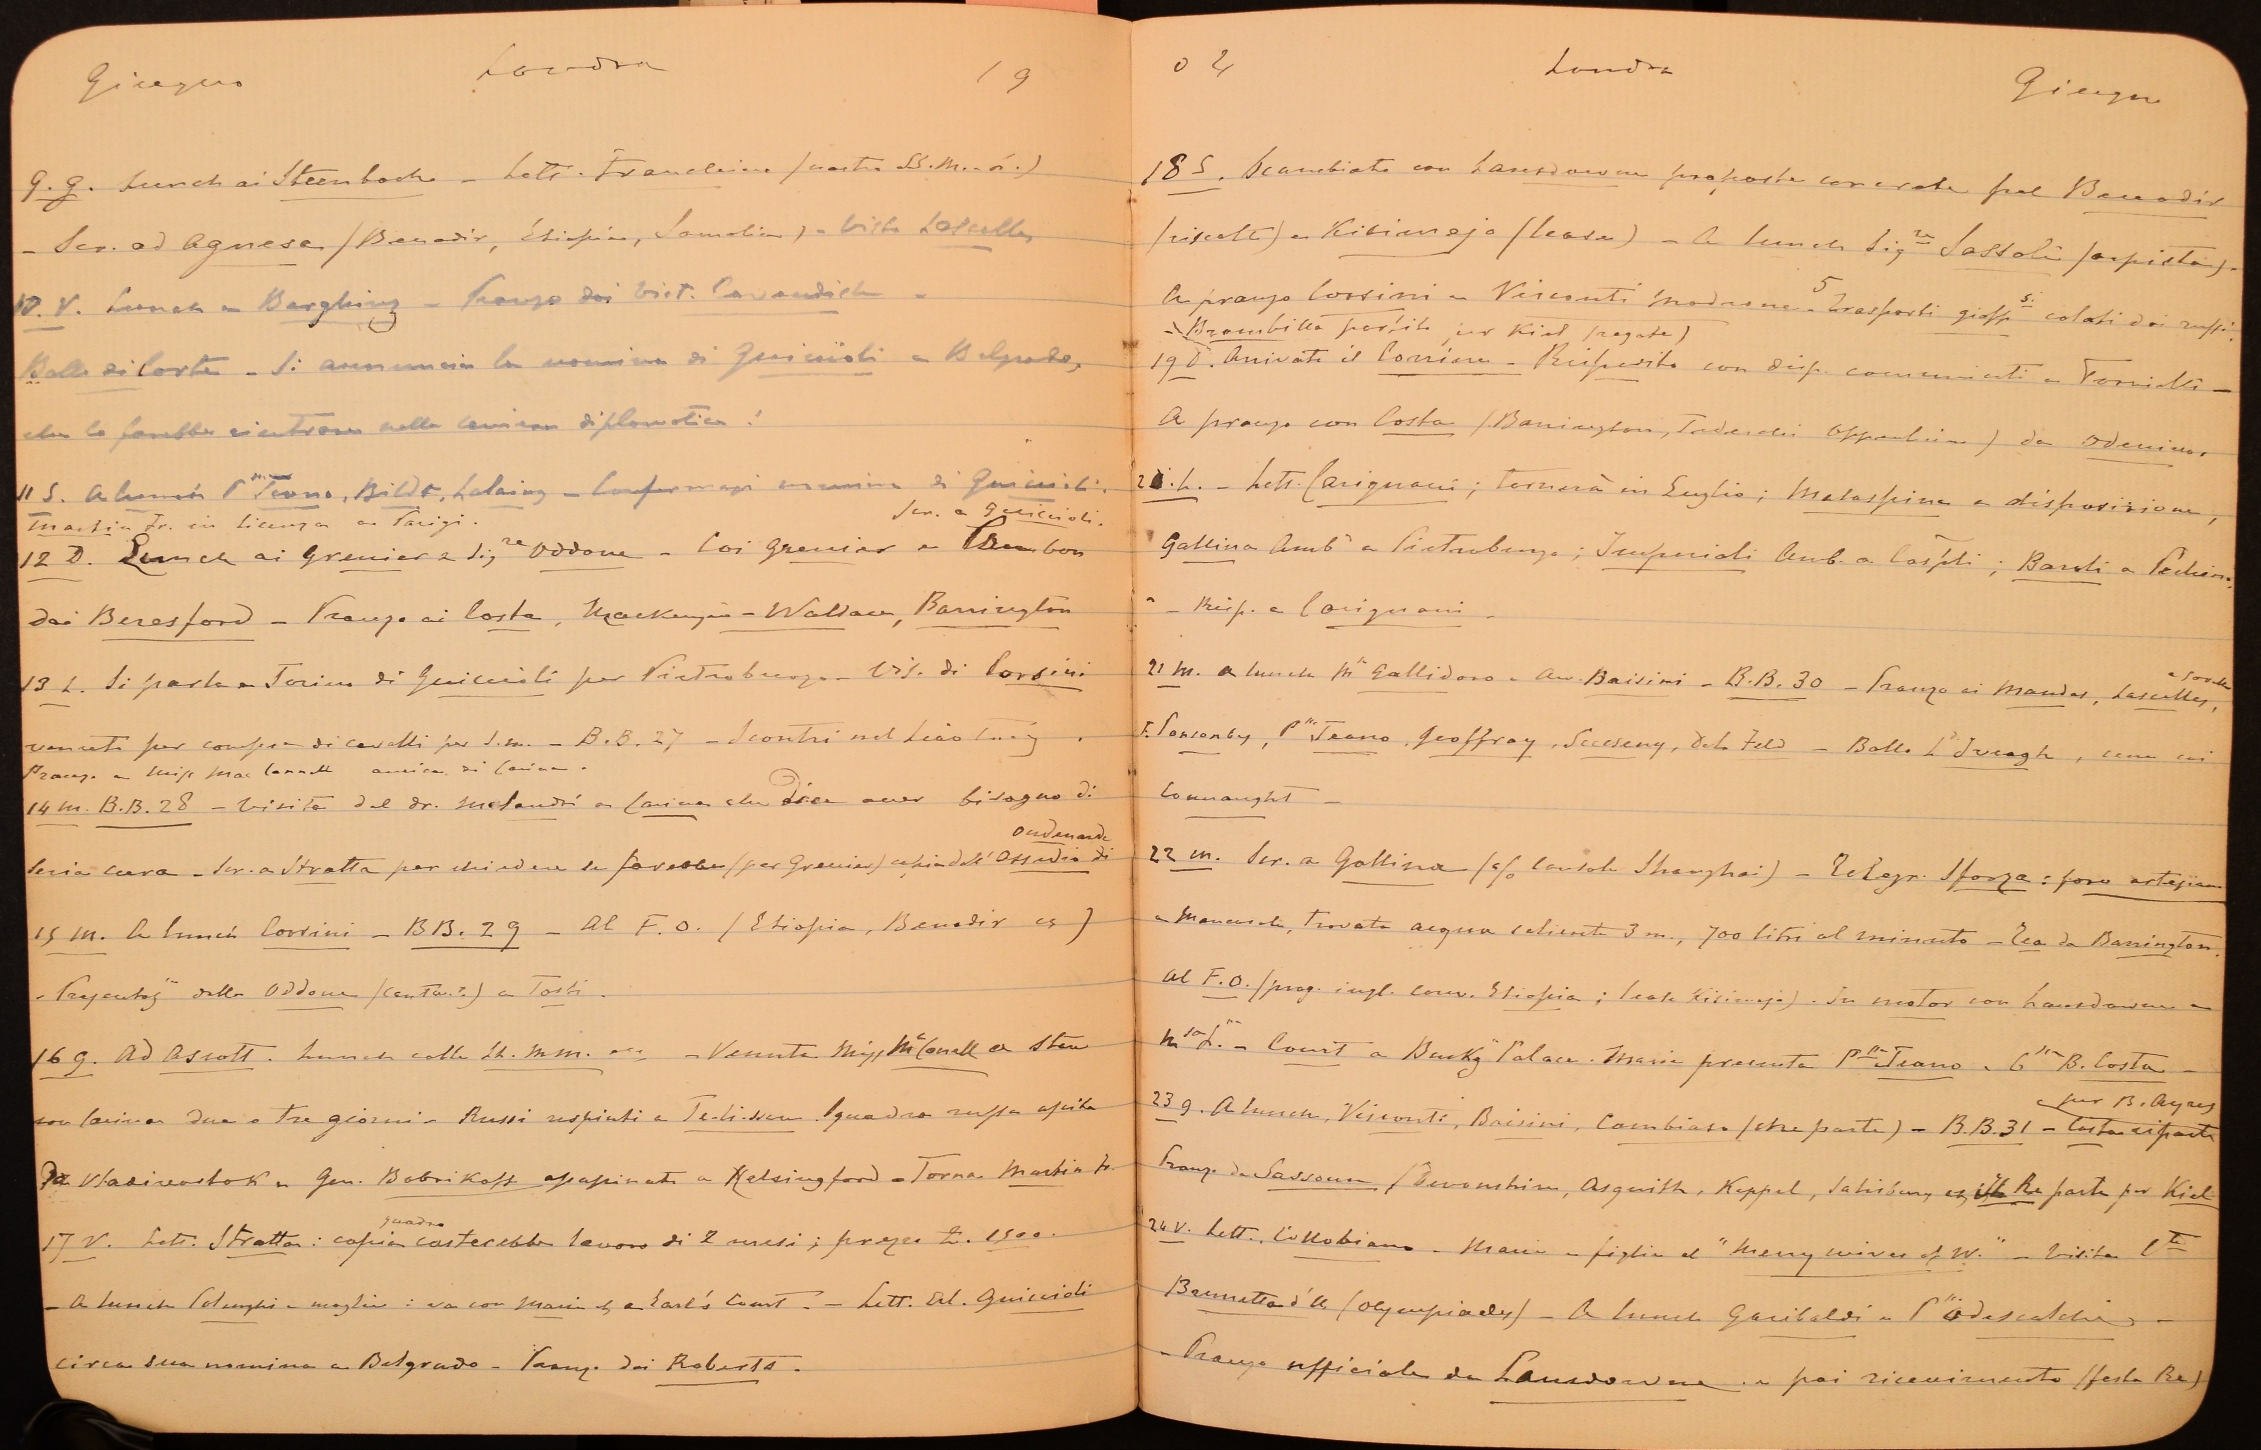 Giugno Londra 19
9. G. Lunch ai Steenbock - Lett. Franchina
- Scr. ad Agnesa (Benadir, Etiopia, Somalia) - Vista Lascelles
10. V. Lunch a - Pranzo dai Vict. Cavendish -
Ballo di Corte - Si annuncia la nomina di Guiccioli a Belgrado,
che lo farebbe rientrare nella carriera diplomatica!
11 S. A lunch Pssa Teano, Bildt, Lalaing - Confermasi nomina di Guiccioli.
Martin Fr. in licenza a Parigi. Scr. a Guiccioli.
12 D. Lunch ai Grenier e Sigra Oddone - Coi Grenier e Cambon
dai Beresford - Pranzo ai Costa, Mackenzie-Wallace, Barrington
13 L. Si parla a Torino di Guiccioli per Pietroburgo - Vis. di Corsini
venuto per compra di cavalli per S.M. - B.B. 27 - Scontri nel Liao Tung.
Pranzo a Miss Mac Connell amica di Carina.
14 M. B.B. 28 - Visita del dr. Melandri a Carina che dice aver bisogno di
seria cura - Scr. a Stratta per chiedere se farebbe (per Grenier) copia dell' Assedio di
Oudenarde
15 M. A lunch Corsini - B.B. 29 - Al F.O. (Etiopia, Benadir es)
- della Oddone a Tosti.
16 G. Ad Ascott. Lunch colle LL. MM. - Venuta Miss McConell a stare
con Carina due o tre giorni - Russi respinti a Te-li-ssu. Squadra russa uscita
da Vladivostok - Gen. Bobrikoff assassinato a Helsingford - Torna Martin Fr.
17 V. Lett. Stratta: copia quadro costerebbe lavoro di 2 mesi; prezzo L. 1500.
- A lunch Polenghi e moglie: va con Maria a Earl's Court. - Lett. del Guiccioli
circa sua nomina a Belgrado - Pranzo dai Roberts.
04 Londra Giugno
18 S. Scambiate con Lansdowne proposte concrete pel Benadir
(riscatto) e Kisimajo (lease) - A lunch Sigra Sassoli (arpista) -
A pranzo Corsini e Visconti Modrone - 5 trasporti giappsi. colati dai russi.
- Brambilla partito per Kiel (regate)
19 D. Arrivato il Corriere - Risposto con disp. comunicati a Tornielli -
A pranzo con Costa (Barrington, Tedeschi Oppenheim) da Odenino
20. L. - Lett. Carignani; tornerà in Luglio; Malaspina a disposizione,
Gallina Ambe a Pietroburgo; Imperiali Amb. a Cospli; Baroli a Pechino
- Risp. a Carignani.
21 M. A lunch Mse Gallidoro - Avv. Baisini - B.B. 30 - Pranzo ai Mandas, Lascelles,
F. Ponsonby, Pssa Teano, Geoffray, Szecseny, - Ballo Ld Iveagh, cena coi
Connaught -
22 M. Scr. a Gallina (c/o Console Shanghai) - Telegr. Sforza: foro artesiano
a, trovata acqua saliente 3 m., 700 litri al minuto - Tea da Barrington.
Al F.O. (prog. ingl. conv. Etiopia; lease Kisimajo) - In motor con Lansdowne e
- Court a Buckgm Palace. Maria presenta Pssa Teano e Cssa B. Costa -
23 G. A lunch, Visconti, Baisini, Cambiaso (che parte) - B.B. 31 - Costa riparte
per B. Ayres
Pranzo da Sassoon (Devonshire, Asquith, Keppel, Salisbury es) Il Re parte per Kiel
24 V. Lett. Collobiano - Maria e figlia al "Merry wives of W." - Visita Cte
Brunetta d'U (Olympiades) - A lunch Garibaldi e Pssa Odescalchi -
- Pranzo ufficiale da Lansdowne e poi ricevimento (festa Re)